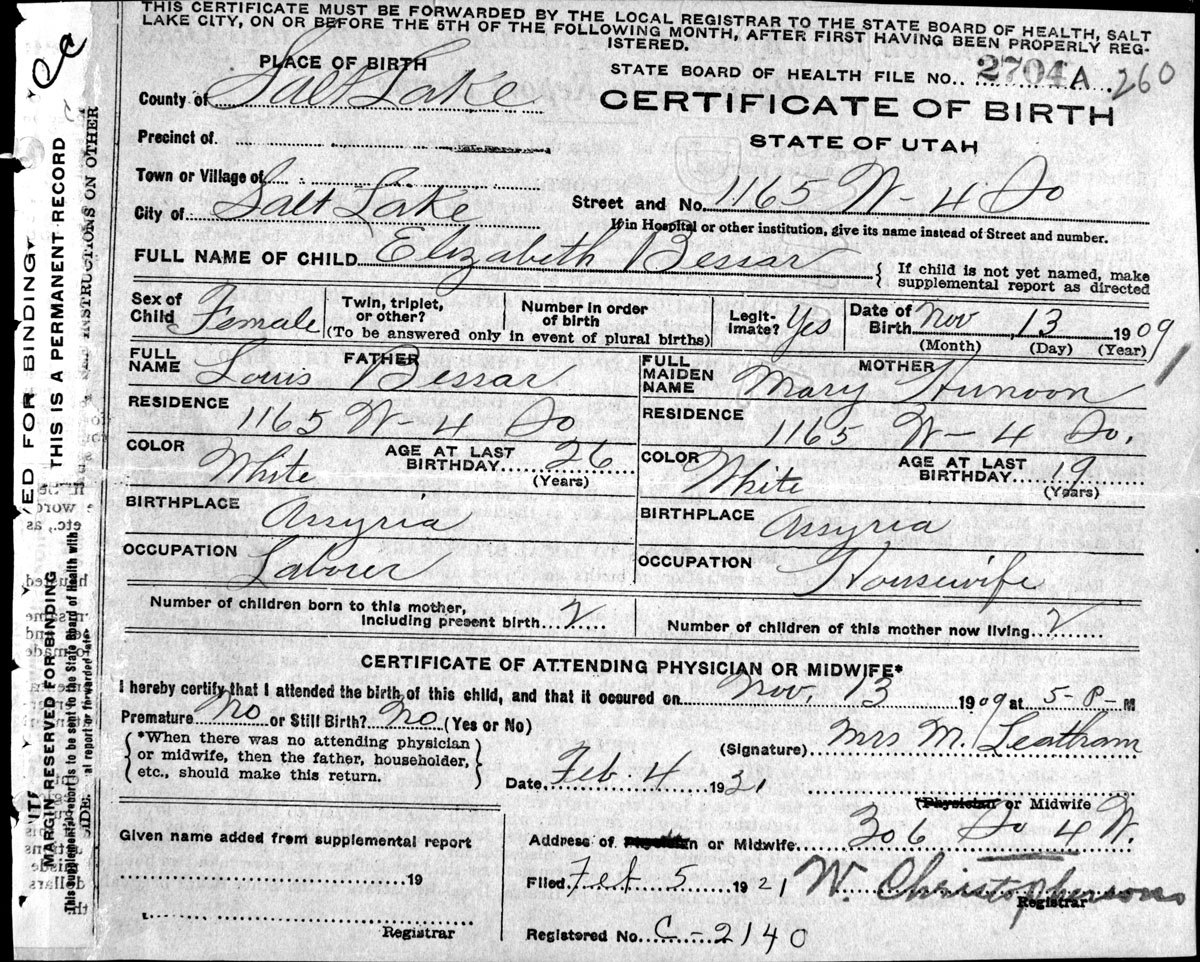 THIS CERTIFICATE MUST BE FORWARDED BY THE LOCAL REGISTRAR TO THE STATE BOARD OF HEALTH, SALT
LAKE CITY, ON OR BEFORE THE 5TH OF THE FOLLOWING MONTH, AFTER FIRST HAVING BEEN PROPERLY REG-
ISTERED.
PLACE OF BIRTH
STATE BOARD OF HEALTH FILE NO. 2704 A 260
County of Salt Lake
CERTIFICATE OF BIRTH
STATE OF UTAH
Precinct of
Town or Village of
City of Salt Lake
Street and No. 1165 W - 4 So
If in Hospital or other institution, give its name instead of Street and number.
FULL NAME OF CHILD Elizabeth Bessar
{ If child is not yet named, make
supplemental report as directed
Sex of Child Female
Twin, triplet, or other?
Number in order of birth
(To be answered only in event of plural births)
Legit-imate? Yes
Date of Birth Nov, 13 1909
(Month) (Day) (Year)
FATHER
FULL NAME Louis Bessar
MOTHER
FULL MAIDEN NAME Mary Hunoon
RESIDENCE 1165 W - 4 So
RESIDENCE 1165 W - 4 So.
COLOR White AGE AT LAST BIRTHDAY 26 (Years)
COLOR White AGE AT LAST BIRTHDAY 19 (Years)
BIRTHPLACE Assyria
BIRTHPLACE Assyria
OCCUPATION Laborer
OCCUPATION Housewife
Number of children born to this mother,
including present birth 2
Number of children of this mother now living 2
CERTIFICATE OF ATTENDING PHYSICIAN OR MIDWIFE*
I hereby certify that I attended the birth of this child, and that it occured on Nov, 13 1909 at 5-P-M
Premature No or Still Birth? No (Yes or No)
{ *When there was no attending physician
or midwife, then the father, householder,
etc., should make this return. }
(Signature) Mrs M. Leatham
Date Feb. 4 1921
(Physician or Midwife
Given name added from supplemental report
19
Registrar
Address of Physician or Midwife 306 So 4 W.
Filed Feb 5 1921 W. Christopherson
Registrar
Registered No. C-2140
MARGIN RESERVED FOR BINDING
THIS IS A PERMANENT RECORD
INSTRUCTIONS ON OTHER
SIDE